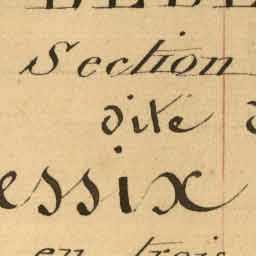 Section
dite d
essix
en trois